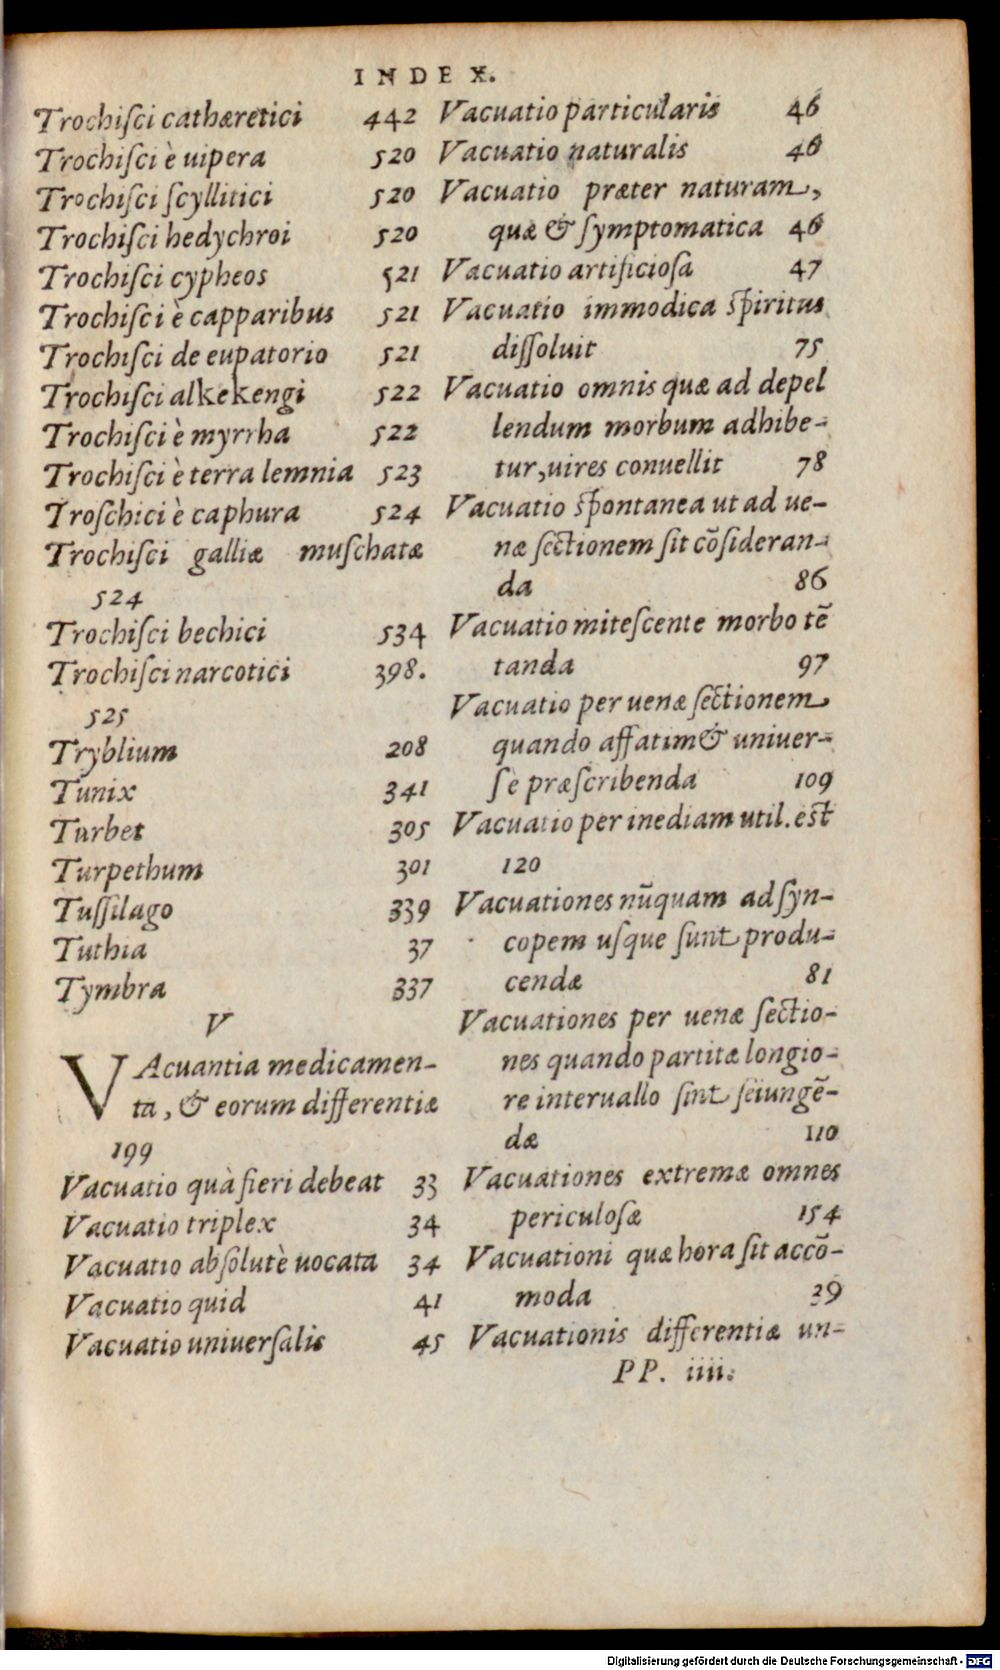 INDEX.
Trochiſci cathæretici 442
Trochiſci è uipera 520
Trochiſci ſcyllitici 520
Trochiſci hedychroi 520
Trochiſci cypheos 521
Trochiſci è capparibus 521
Trochiſci de eupatorio 521
Trochiſci alkekengi 522
Trochiſci è myrrha 522
Trochiſci è terra lemnia 523
Troſchici è caphura 524
Trochiſci galliæ muſchatæ
524
Trochiſci bechici 534
Trochiſci narcotici 398.
525
Tryblium 208
Tunix 341
Turbet 305
Turpethum 301
Tuſſilago 339
Tuthia 37
Tymbra 337
V
VAcuantia medicamen-
ta, & eorum differentiæ
199
Vacuatio quà fieri debeat 33
Vacuatio triplex 34
Vacuatio abſolutè uocata 34
Vacuatio quid 41
Vacuatio uniuerſalis 45
Vacuatio particularis 46
Vacuatio naturalis 46
Vacuatio præter naturam,
quæ & ſymptomatica 46
Vacuatio artificioſa 47
Vacuatio immodica ſpiritus
diſſoluit 75
Vacuatio omnis quæ ad depel
lendum morbum adhibe-
tur, uires conuellit 78
Vacuatio ſpontanea ut ad ue-
næ ſectionem ſit cõſideran-
da 86
Vacuatio miteſcente morbo tẽ
tanda 97
Vacuatio per uenæ ſectionem
quando affatim & uniuer-
ſe præſcribenda 109
Vacuatio per inediam util. est
120
Vacuationes nũquam ad ſyn-
copem uſque ſunt produ-
cendæ 81
Vacuationes per uenæ ſectio-
nes quando partitæ longio-
re interuallo ſint ſeiungẽ-
dæ 110
Vacuationes extremæ omnes
periculoſæ 154
Vacuationi quæ hora ſit accõ-
moda 39
Vacuationis differentiæ un-
PP. iiii.
Digitalisierung gefördert durch die Deutsche Forschungsgemeinschaft - DFG